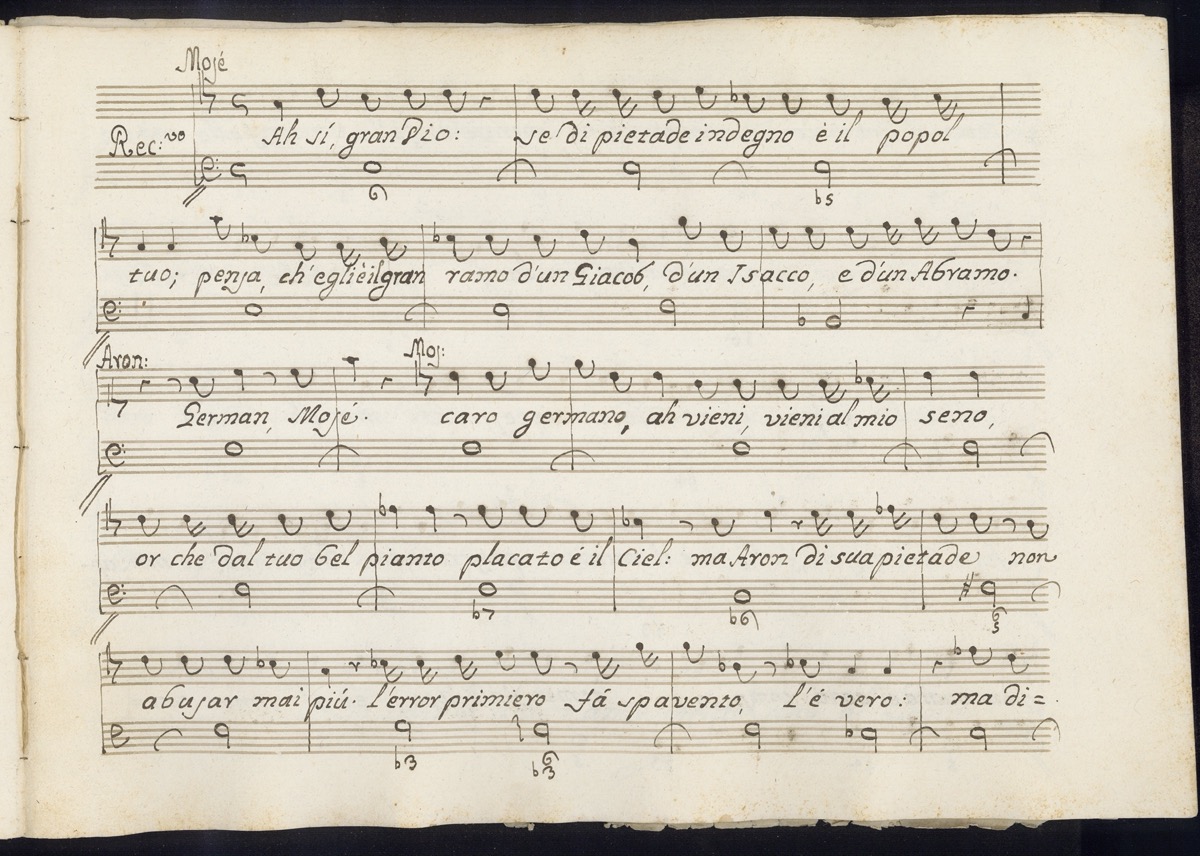 Mosé
Rec:vo Ah sí, gran Dio: se di pietade indegno è il popol
6 b5
tuo; pensa, ch'egli è il gran ramo d'un Giacob, d'un Isacco, e d'un Abramo.
Aron: Mos:
German, Mosé. caro germano, ah vieni, vieni al mio seno,
or che dal tuo bel pianto placato é il Ciel: ma Aron di sua pietade non
b7 b6 6 5
abusar mai piú. l'error primiero fá spavento, l'é vero: ma di=
b3 6 b3